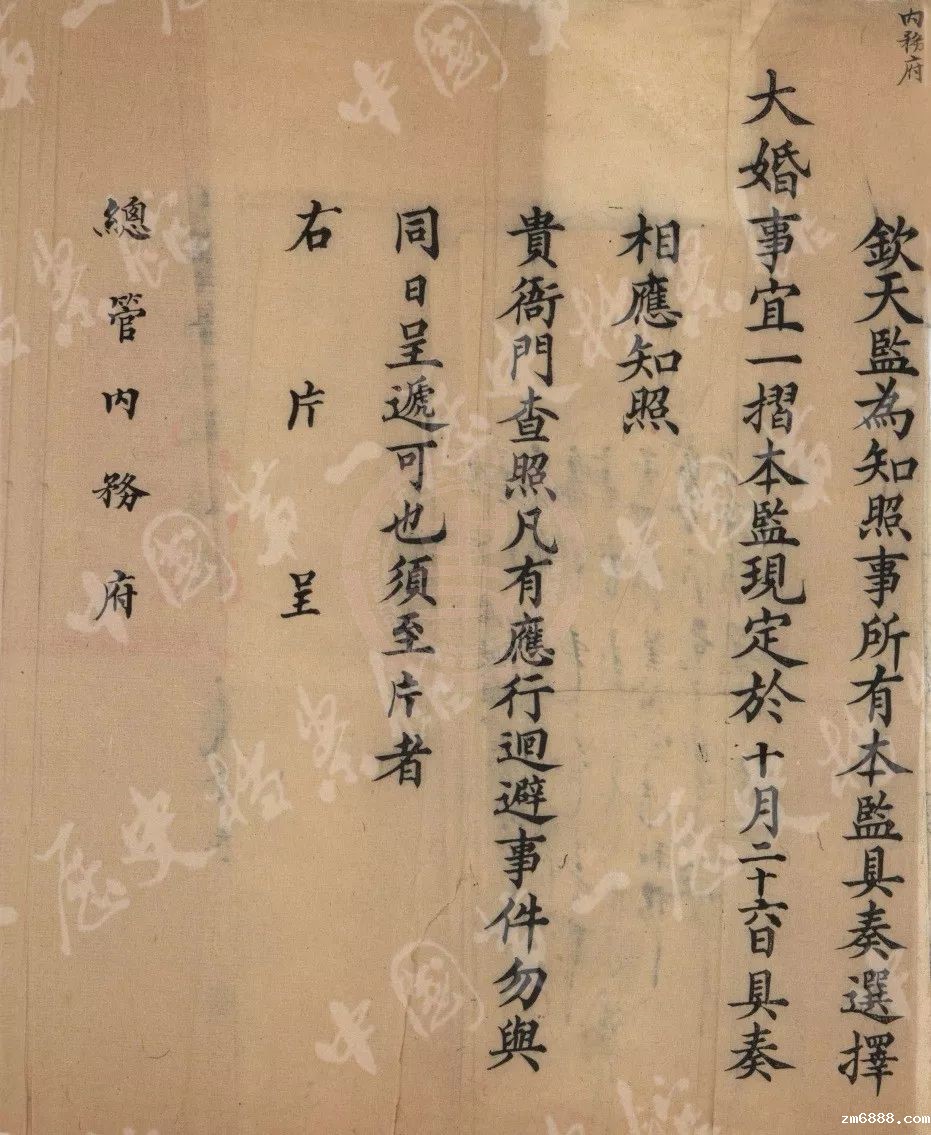 内務府
欽天監為知照事所有本監具奏選擇
大婚事宜一摺本監現定於十月二十六日具奏
相應知照
貴衙門查照凡有應行迴避事件勿與
同日呈遞可也須至片者
右片呈
總管內務府
中國第一歷史檔案館
zm6888.com